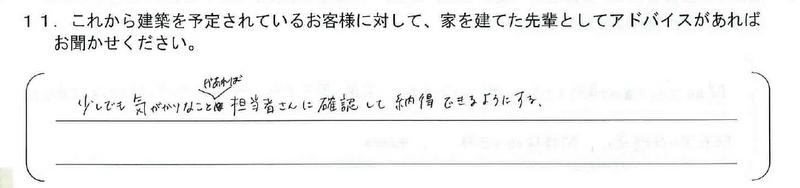 11．これから建築を予定されているお客様に対して、家を建てた先輩としてアドバイスがあれば
お聞かせください。
少しでも気がかりなことがあれば担当者さんに確認して納得できるようにする。